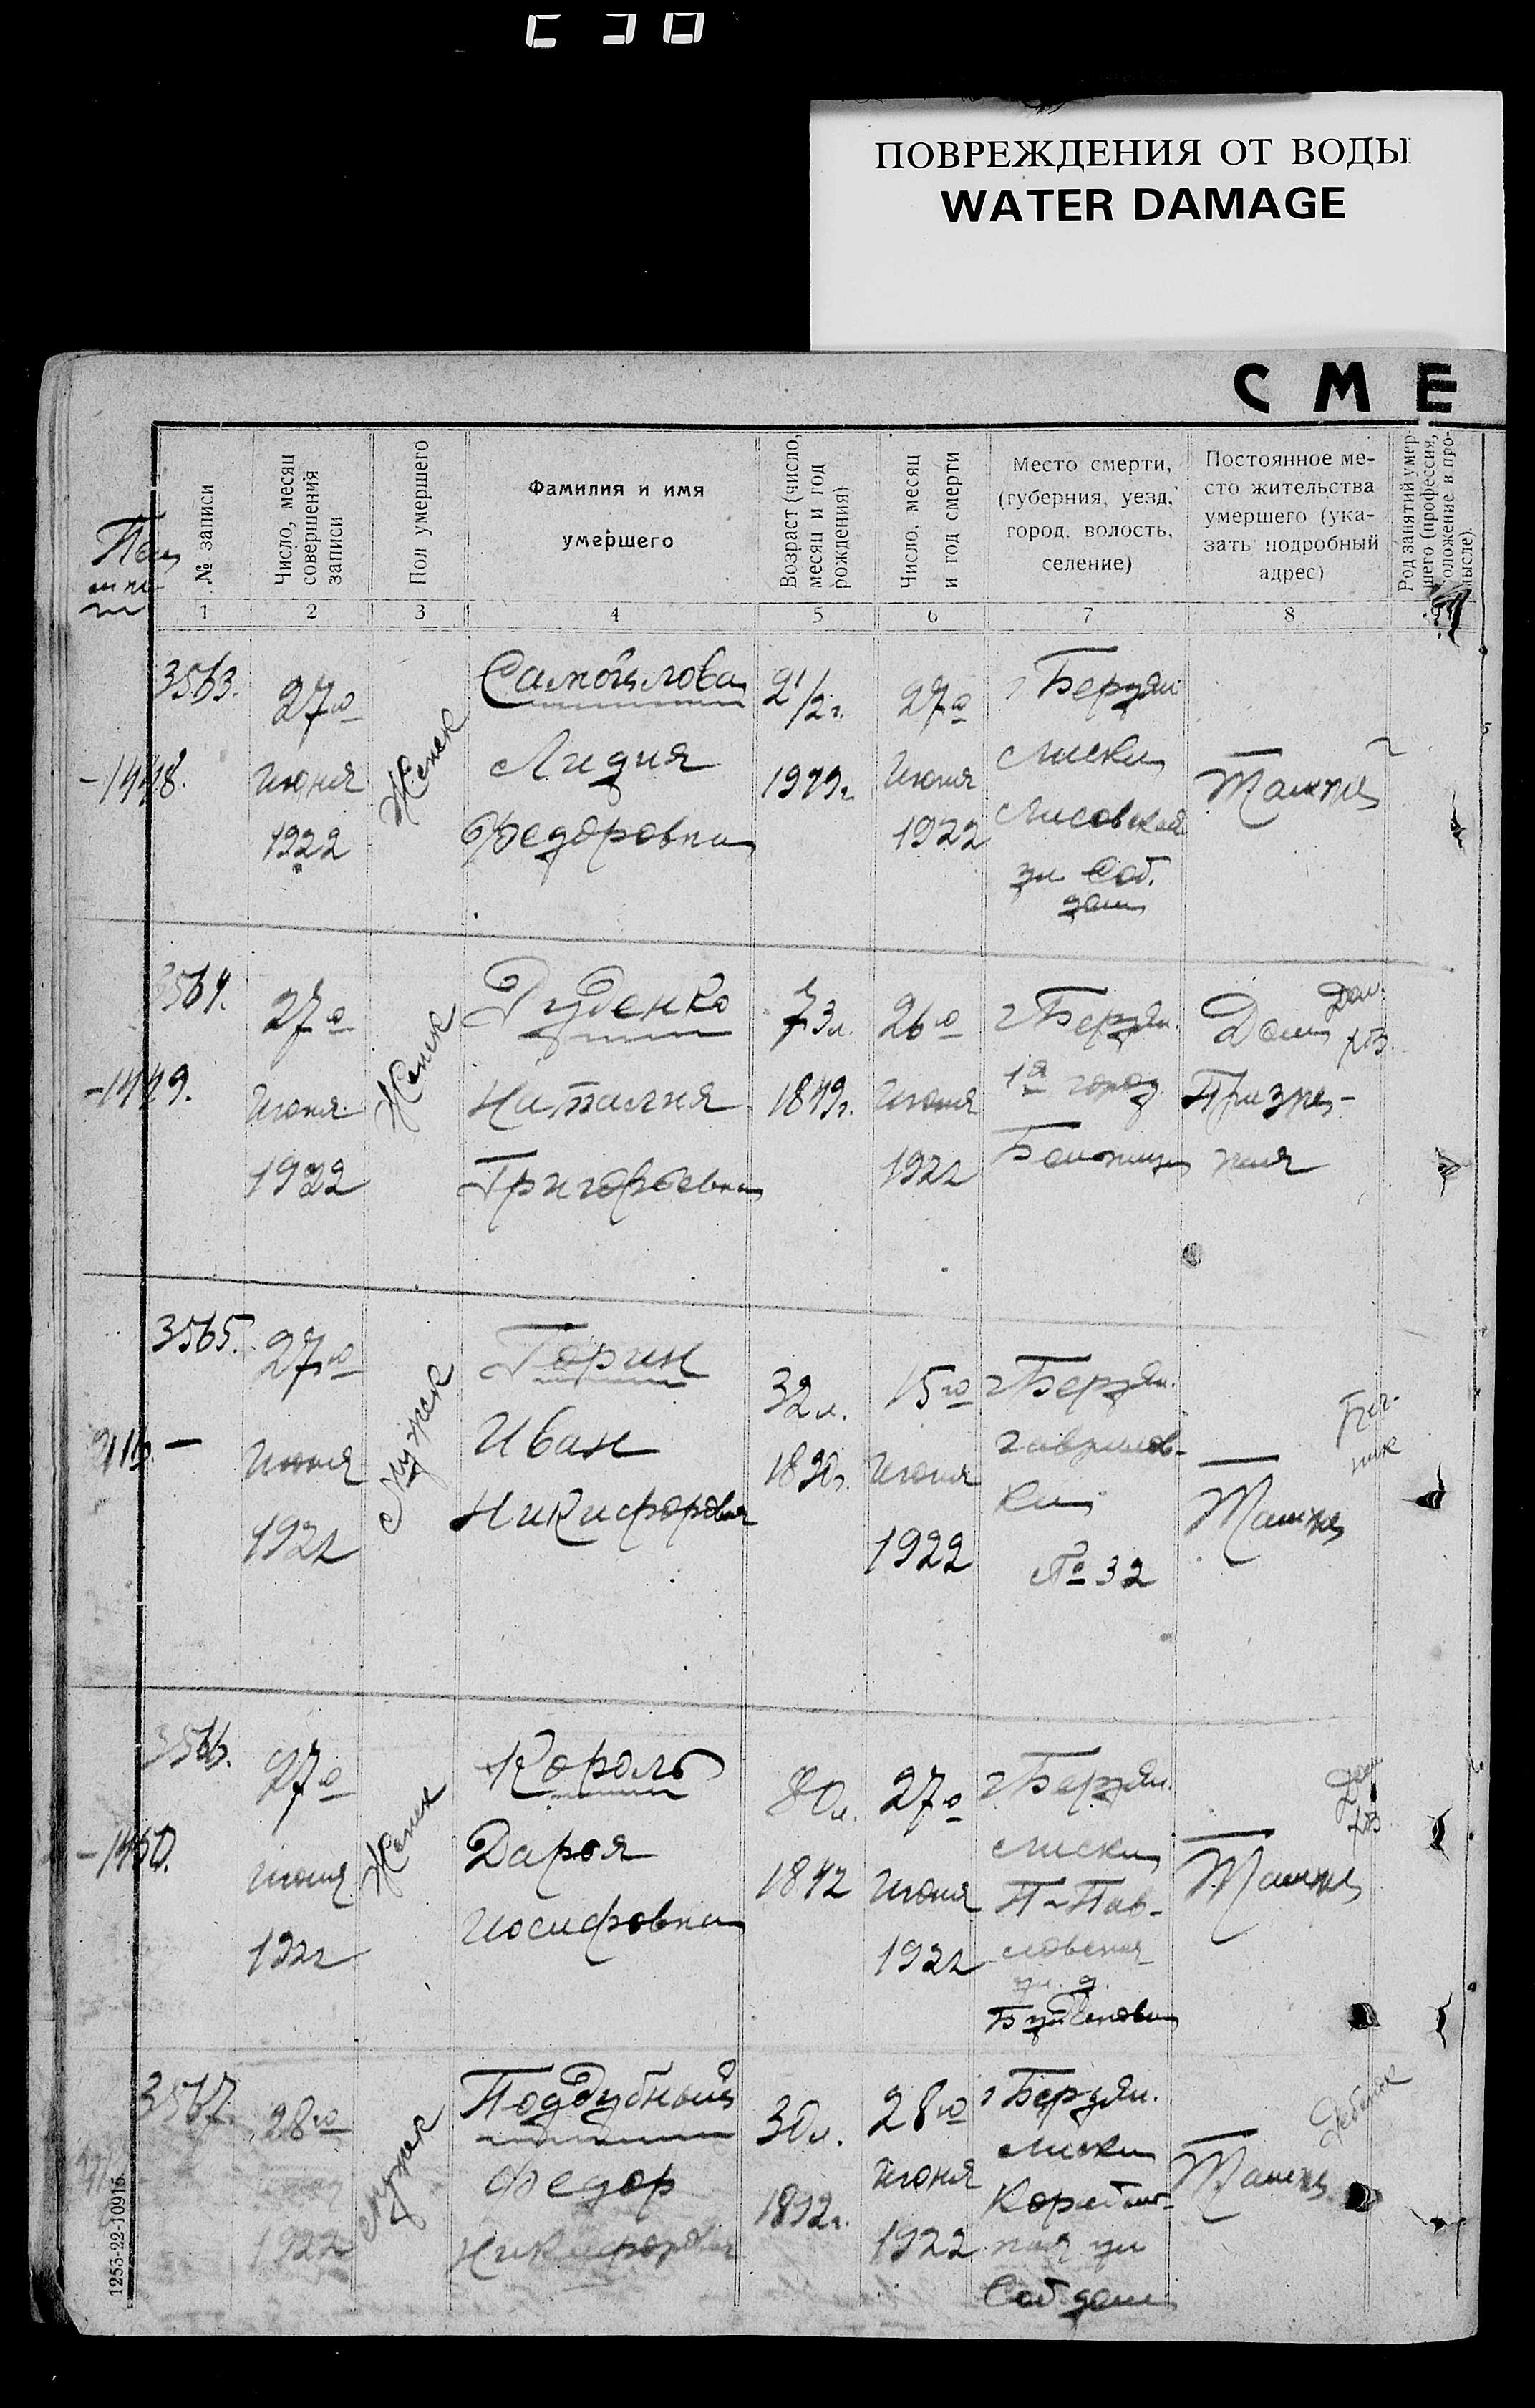 ПОВРЕЖДЕНИЯ ОТ ВОДЫ
WATER DAMAGE
СМЕ
№ записи
Число, месяц
совершения
записи
Пол умершего
Фамилия и имя
умершего
Возраст (число,
месяц и год
рождения)
Число, месяц
и год смерти
Место смерти,
(губерния, уезд,
город, волость,
селение)
Постоянное ме-
сто жительства
умершего (ука-
зать подробный
адрес)
Род занятий умер-
шего (профессия,
положение в про-
мысле)
1 2 3 4 5 6 7 8
3563.
-1448.
27го
июня
1922
Женск
Самойлова
Лидия
Федоровна
2 1/2 г.
1919г
27го
июня
1922
г Бердян
Лиски
Лисовская
ул. Соб.
дом
Тамже
3564.
-1449.
27го
июня
1922
Женск
Дуденко
Наталия
Григорьевна
73л.
1849г.
26го
июня
1922
г Бердян.
1я город
Больница
Дом
Призре-
ния
Дом.
хоз.
3565.
27го
июня
1922
Мужск
Горин
Иван
Никифорович
32л.
1890г.
15го
июня
1922
г Бердян.
№ 32
Тамже
3566.
-1450.
27го
июня
1922
Женск
Король
Дарья
Иосифовна
80л.
1842
27го
июня
1922
г Бердян.
Лиски
П-Пав-
ловская
ул. д.
Тамже
Дом
хоз
3567.
28го
1922
Мужск
Поддубный
Федор
Никифорович
30л.
1892г.
28го
июня
1922
г Бердян.
Лиски
ная ул
Соб дом
Тамже
1253-22-10915